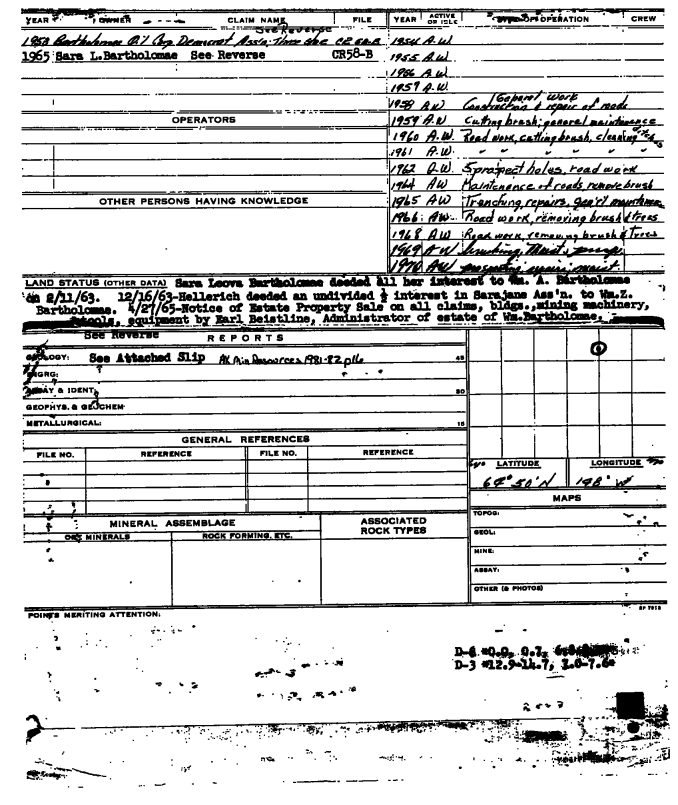 YEAR OWNER CLAIM NAME FILE YEAR ACTIVE OR IDLE TYPE OF OPERATION CREW
See Reverse
1953 Bartholomae Oil Corp. Democrat Ass'n. CR 58-B 1954 A.W
1965 Sara L.Bartholomae See Reverse CR58-B 1955 A.W
1956 A.W
1957 A.W
General Work
1958 AW Construction & repair of roads
OPERATORS 1959 A.W Cutting brush; general maintenence
1960 A.W. Road work, cutting brush, cleaning
1961 A.W. " " " "
1962 A.W 5 prospect holes, road work
1964 AW Maintenence of roads, remove brush
OTHER PERSONS HAVING KNOWLEDGE 1965 AW Trenching, repairs, gen'l maintenance
1966 AW Road work, removing brush & trees
1968 AW Road work, removing brush & trees
1969 AW brushing, Maint.,
1970 AW maint
LAND STATUS (OTHER DATA) Sara Leova Bartholomae deeded all her interest to Wm. A. Bartholomae
on 2/11/63. 12/16/63-Hellerich deeded an undivided ½ interest in Sarajane Ass'n. to Wm.Z.
Bartholomae. 4/27/65-Notice of Estate Property Sale on all claims, bldgs.,mining machinery,
tools, equipment by Earl Beistline, Administrator of estate of Wm.Bartholomae.
See Reverse REPORTS
GEOLOGY: See Attached Slip AK Min Resources 1981-82 p16 45
ENGRG:
ASSAY & IDENT: 30
GEOPHYS. & GEOCHEM
METALLURGICAL: 15
GENERAL REFERENCES
FILE NO. REFERENCE FILE NO. REFERENCE
LATITUDE LONGITUDE
64° 50' N 148° W
MAPS
MINERAL ASSEMBLAGE ASSOCIATED ROCK TYPES
ORE MINERALS ROCK FORMING, ETC.
TOPOG:
GEOL:
MINE:
ASSAY:
OTHER (& PHOTOS)
POINTS MERITING ATTENTION:
D-3 #12.9-14.7, 1.0-7.6*